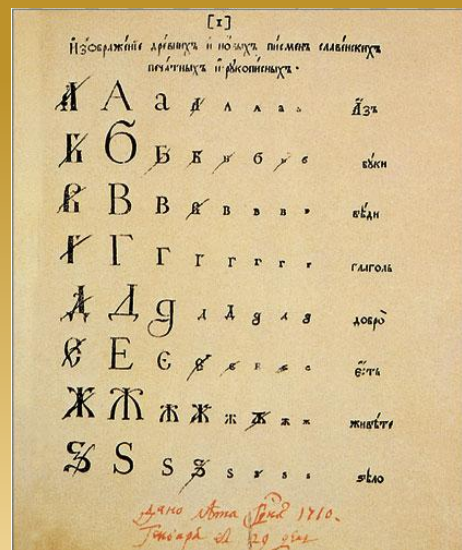 [1]
Изображенїе древнихъ и новыхъ писменъ славенскихъ
печатныхъ и рукописныхъ.
А А а а А А а а Азъ
Б Б Б Б Б б Б б буки
В В В В В В В В вѣди
Г Г Г Г Г Г Г Г глаголь
Д Д д А Д д А д добро
Є Е Є Є Є Є Є Є єсть
Ж Ж Ж Ж Ж Ж Ж Ж живѣте
Ѕ Ѕ Ѕ Ѕ Ѕ Ѕ Ѕ Ѕ ѕѣло
дано лѣта 1710.
29 дня